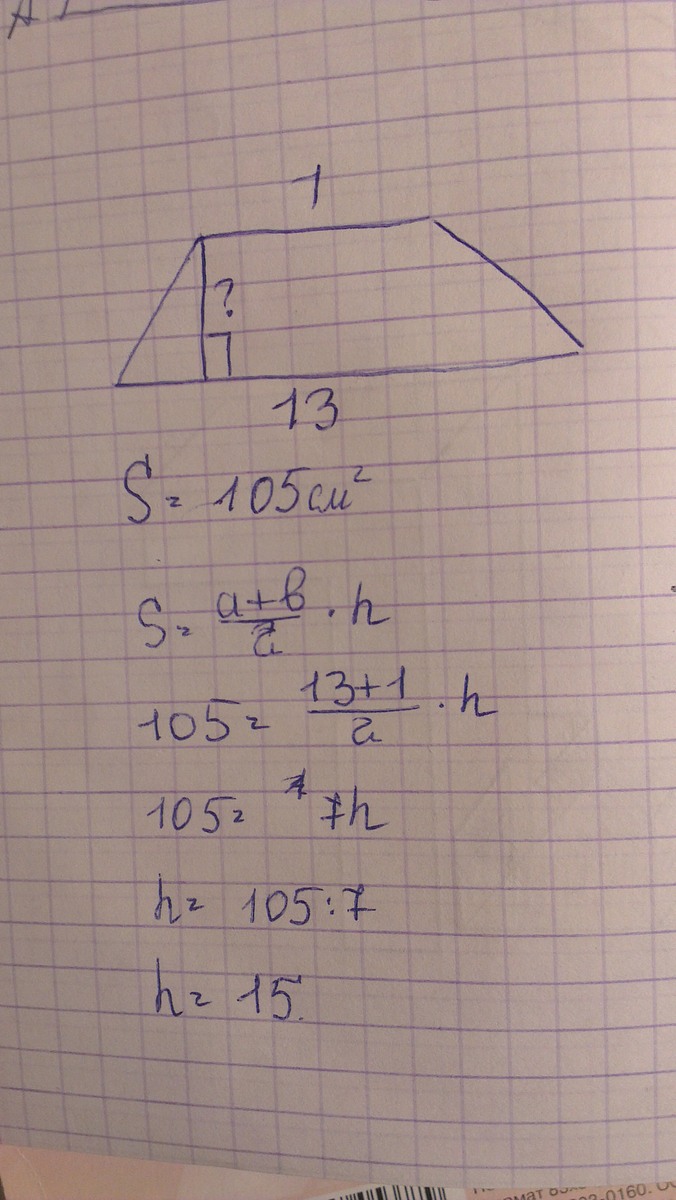 1
?
13
S = 105 см²
S = a+b/2 · h
105 = 13+1/2 · h
105 = 7h
h = 105:7
h = 15.